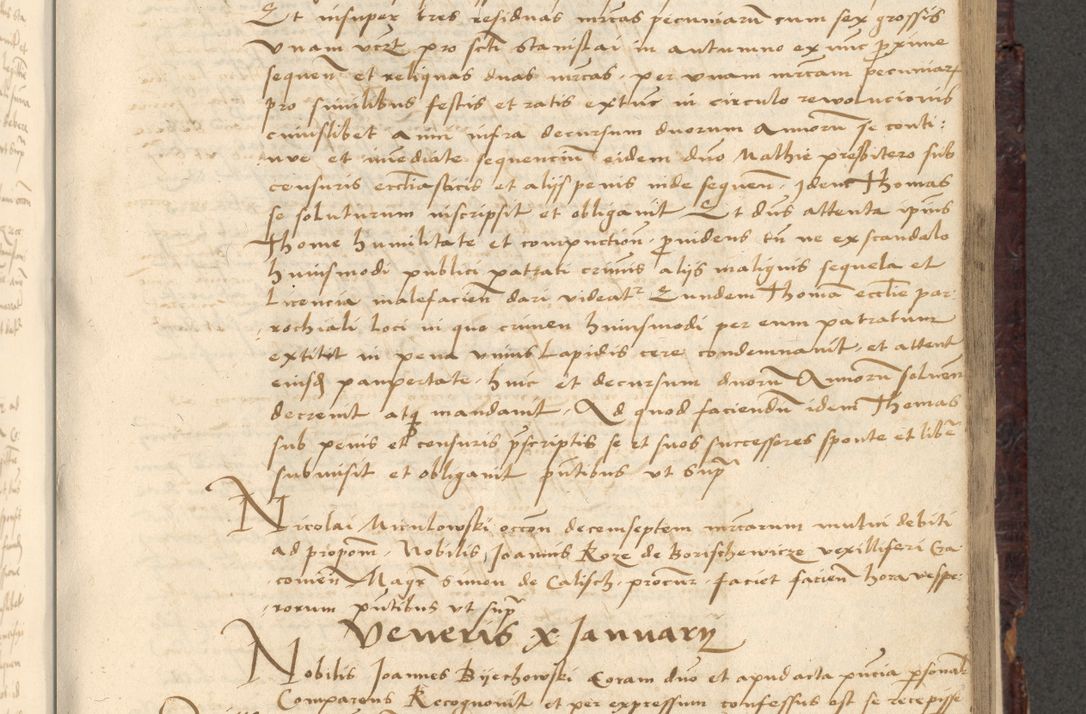 Et insuper tres residuas mrcas pecuniarum cum sex grossis
Unam vcrt pro scti Stanislai in autumno ex nunc proxime
sequen et reliquas duas mrcas per unam mrcam pecuniar
pro similibus festis et ratis extunc in circulo revolucionis
cuiuslibet anni infra decursum duorum Annoru se conti:
nue et imediate sequenciu eidem dno Mathie presbitero sub
censuris ecclasticis et alijs penis inde sequen Idem Thomas
se soluturum inscripsit et obligavit Et dns attenta ipius
Thome humilitate et compunction providens tn ne ex scandalo
huiusmodi publici patrati criminis alijs malignis sequela et
Licencia malefacien dari videatr Eundem Thoma ecclie par:
rochiali loci in quo crimen huiusmodi per eum patratum
extitit in pena unius Lapidis cere condemnavit et attent
eiusd paupertate huic et decursum duoru Annoru soluen
decrevit atq mandavit Ad quod faciendu idem Thomas
sub penis et censuris prscriptis se et suos successores sponte et libere
submisit et obligavit pntibus ut supra
Nicolai occon decemseptem mrcarum mutui debiti
ad propom Nobilis Joannis Roze de Borischewicze vexilliferi Cra
comien Magr Simon de Calisch procur faciet facien hora vesper:
rorum pntibus ut supr
Veneris x Januarij
Nobilis Joannes Byechowski Coram dno et apud acta pncia personalr
Comparens Recognovit et per expressum confessus est se recepisse